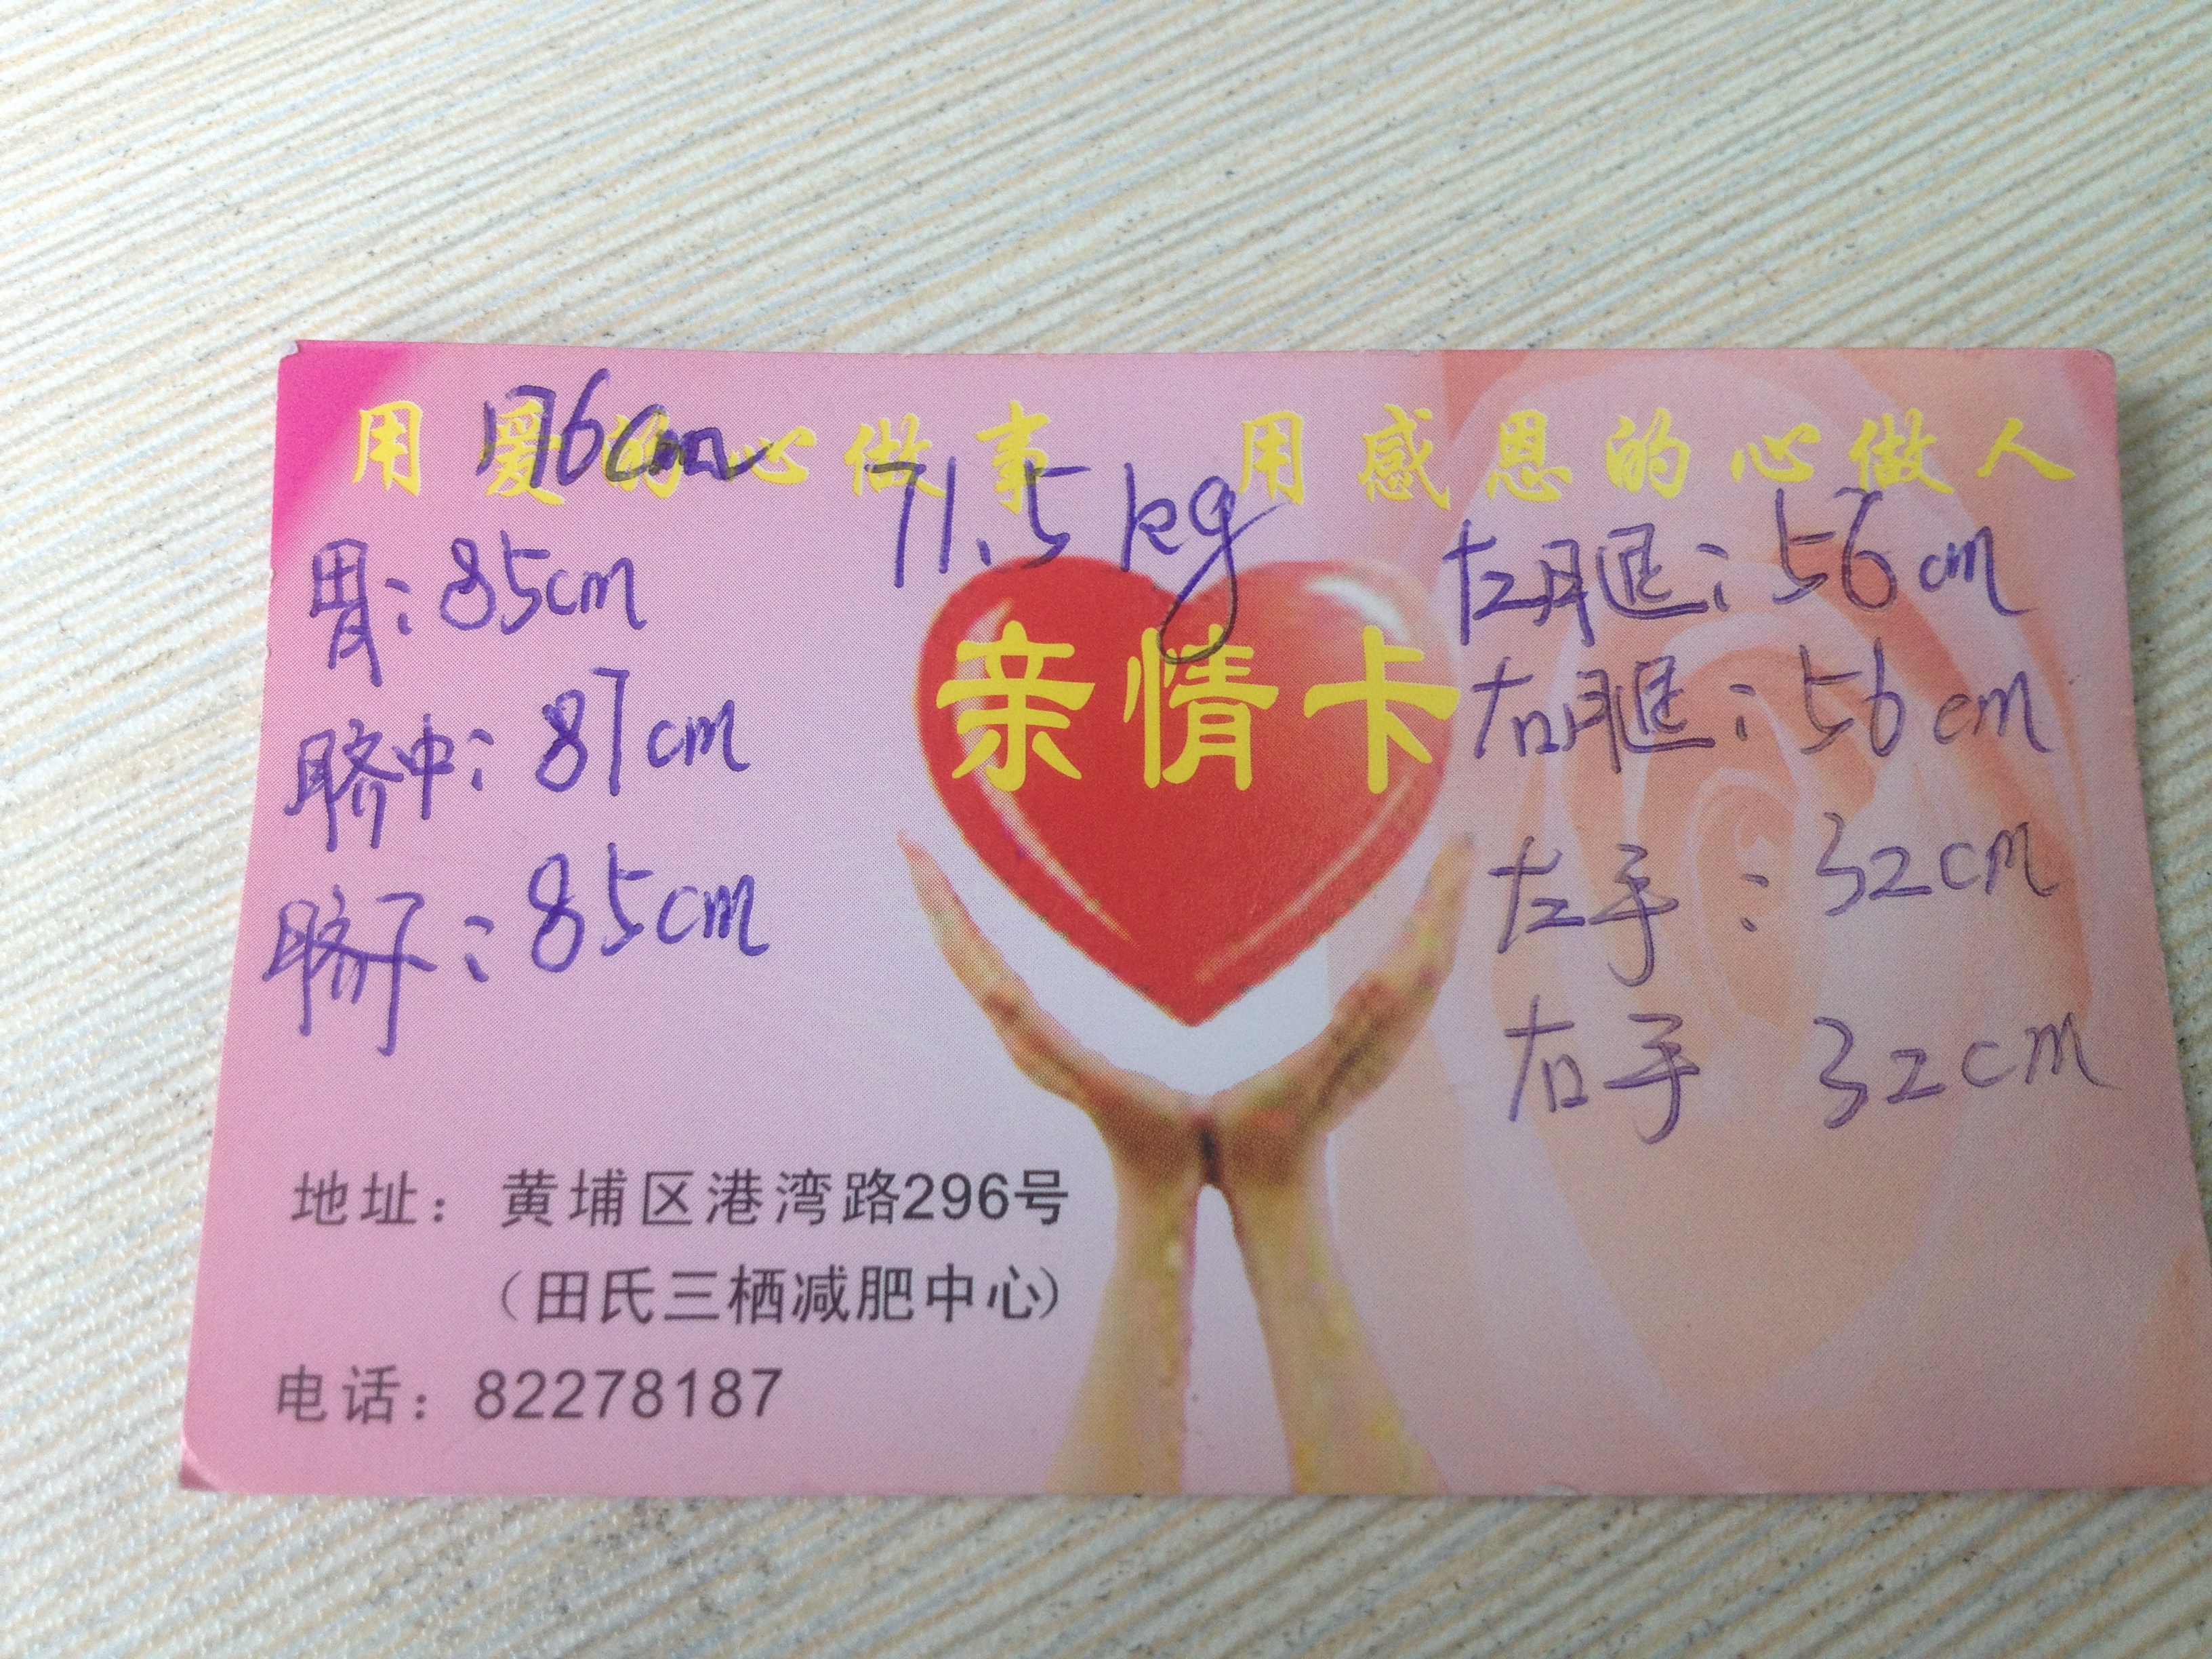 用爱的心做事 用感恩的心做人
176cm
71.5kg
胃:85cm
脐中:87cm
脐子:85cm
亲情卡
左腿:56cm
右腿:56cm
左手:32cm
右手 32cm
地址:黄埔区港湾路296号
(田氏三栖减肥中心)
电话:82278187